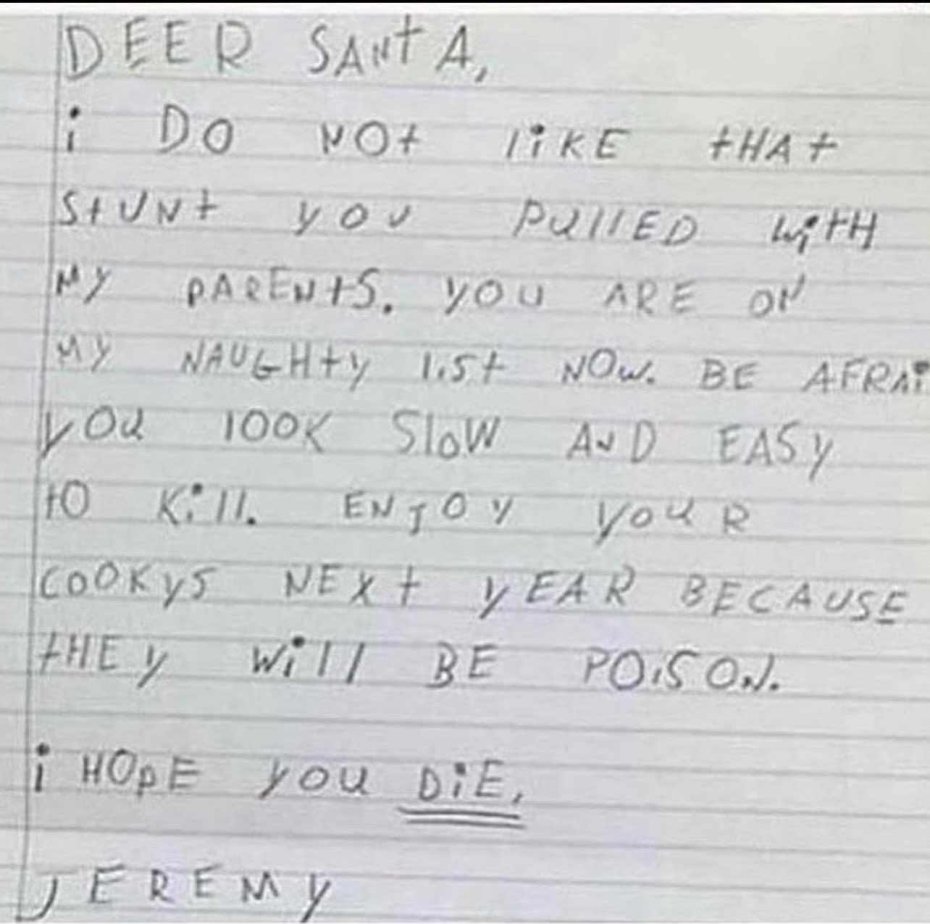 DEER SANtA,
i DO NOt liKE tHAt
StUNt YOU PUllED WitH
MY PARENtS. YOU ARE ON
MY NAUGHtY liSt NOW. BE AFRAi
YOU lOOK SlOW AND EASY
tO Kill. ENJOY YOUR
COOKYS NEXt YEAR BECAUSE
tHEY Will BE POiSON.
i HOpE YOU DiE,
JEREMY